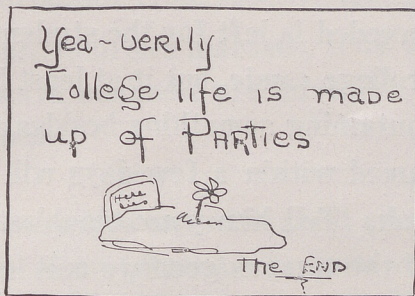 Yea~verily
College life is made
up of Parties
Here
lies
The END
?